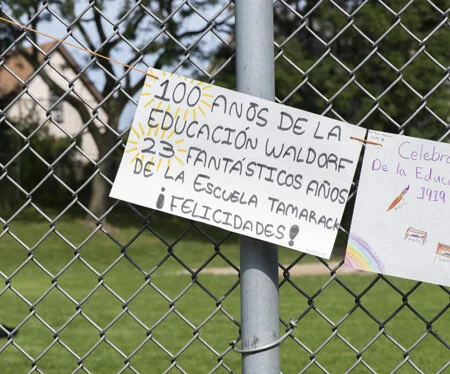 100 AÑOS DE LA
EDUCACIÓN WALDORF
23 FANTÁSTICOS AÑOS
DE LA ESCUELA TAMARACK
¡FELICIDADES!
Celebra
De la Educa
1919